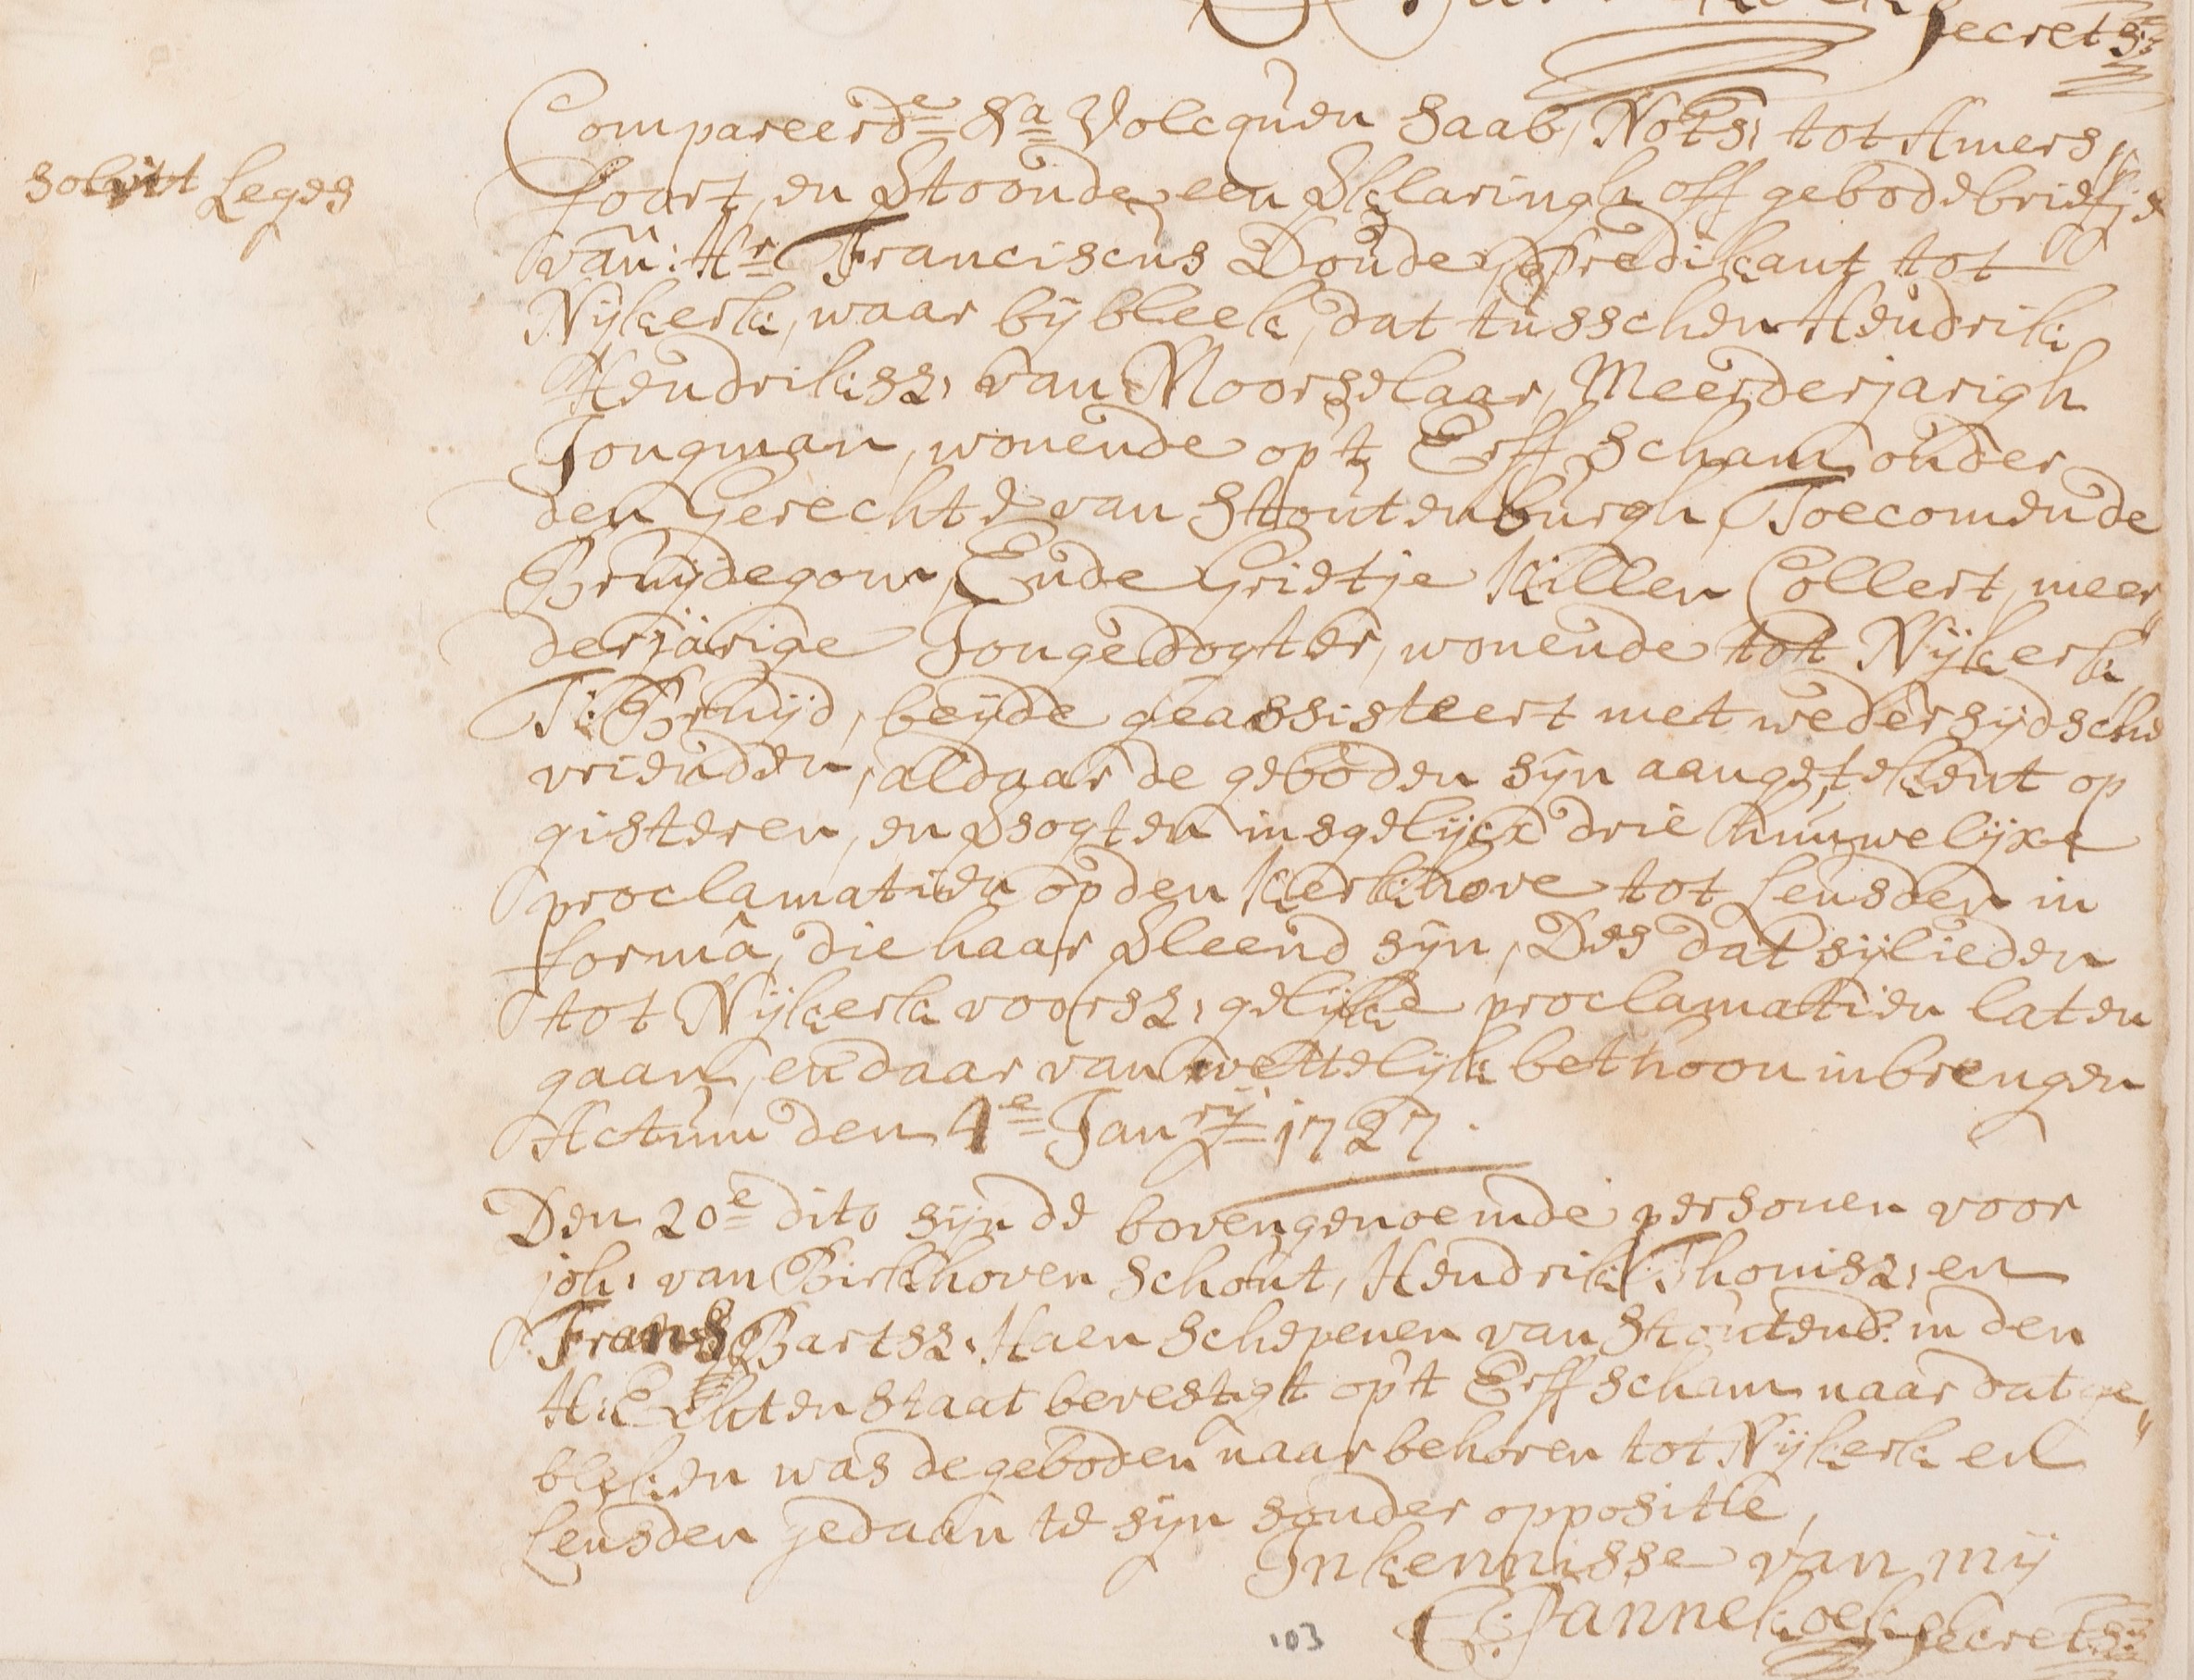 Secrets:
Compareerde Sa Volcquen Saab, Nots, tot Amers„
solvit Leges
foort, en Vtoonde een Vklaringh off gebodebriefje
van: Hr Franciscus Doude, predikant tot
Nijkerk, waar bij bleek, dat tusschen Hendrik
Hendriksz, van Moorselaar, Meerderjarigh
Jongman, wonende op't Erff Scham onder
den Gerechte van Stoutenburgh, Toecomende
Bruijdegom, Ende Grietje Killen Collert, meer„
derjarige Jongedogter, wonende tot Nijkerk
T: Bruijd, beijde geassisteert met wedersijdsche
vrienden, aldaar de geboden sijn aangetekent op
gisteren, en Vsogten insgelijcx drie huuwelijxe
proclamatien op den Kerkhove tot Leusden in
forma, die haar Vleend sijn, Des dat sijlieden
tot Nijkerk voorsz, gelijke proclamatien laten
gaan, en daar van wettelijk bethoon inbrengen
Actum den 4e Janrij 1727.
Den 20e dito sijn de bovengenoemde personen voor
joh: van Birkhoven Schout, Hendrik Thonisz, en
Frans Bartsz. Haen Schepenen van Stoutenb: in den
H: Echten staat bevestigt op't Erff scham naar dat ge„
bleken was de geboden naar behoren tot Nijkerk en
Leusden gedaan te sijn sonder oppositie,
In kennisse van mij
E: Pannekoek Secrets:
103